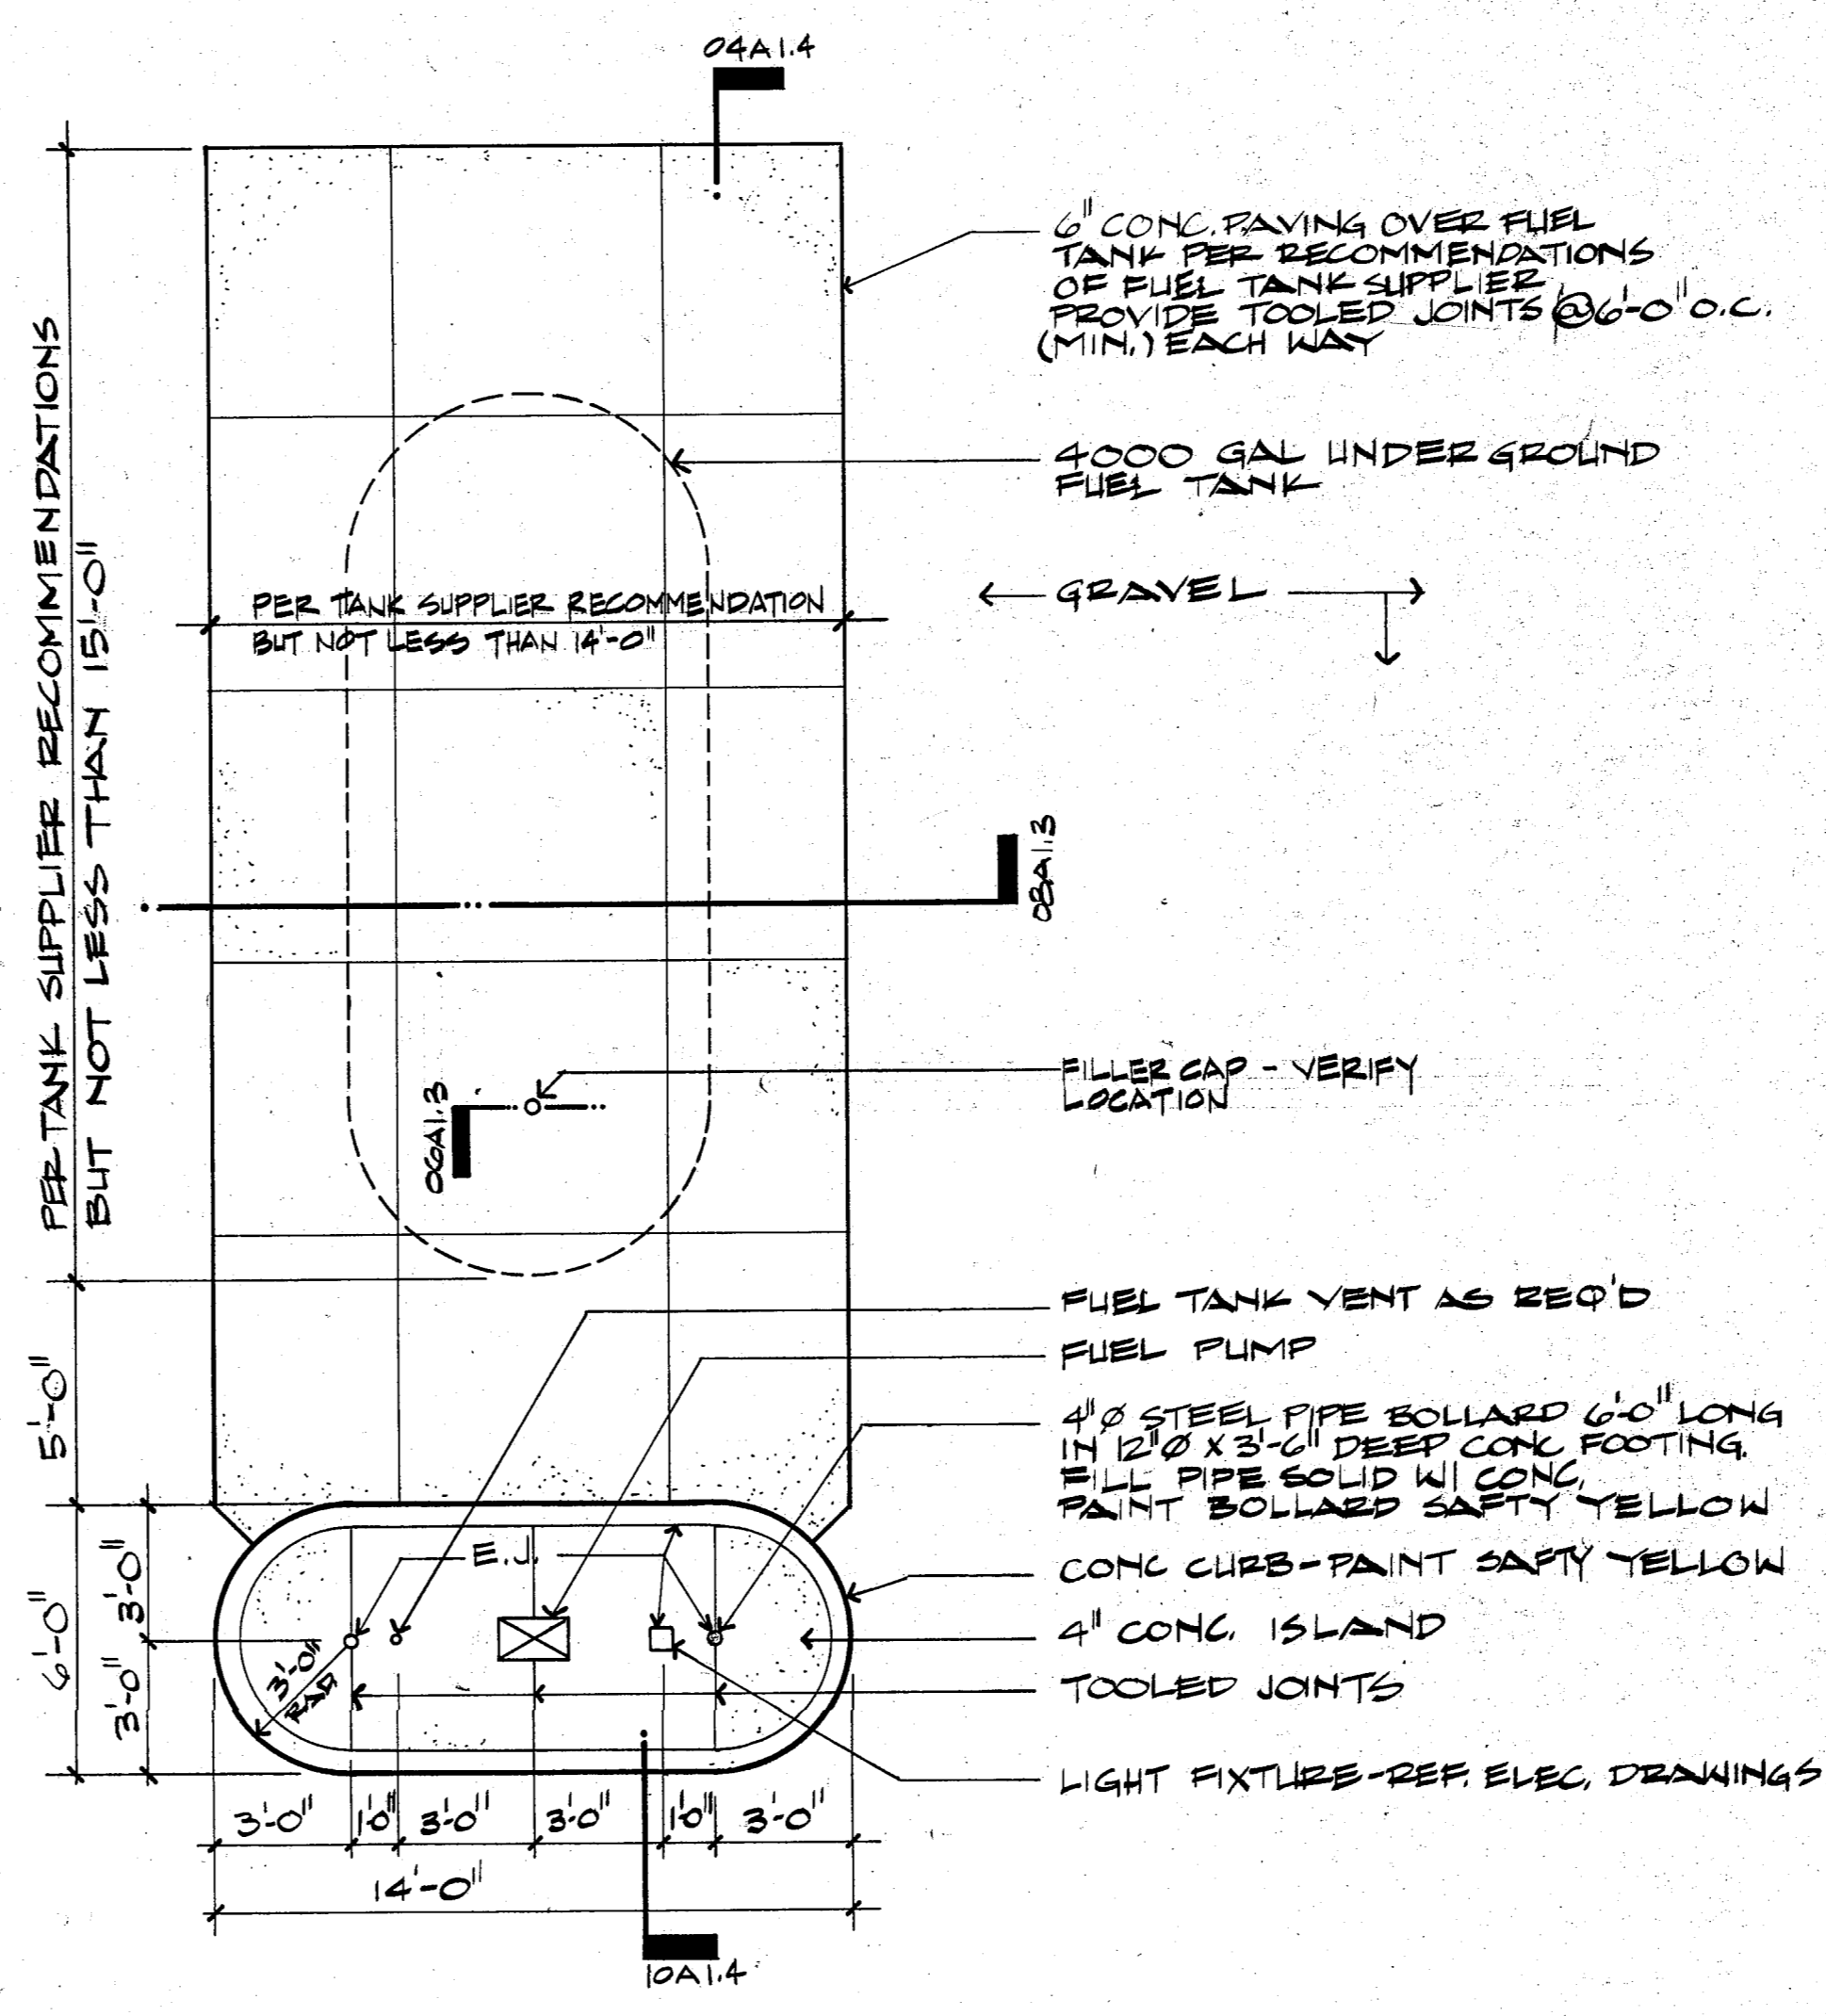 04A1.4
6" CONC. PAVING OVER FUEL
TANK PER RECOMMENDATIONS
OF FUEL TANK SUPPLIER
PROVIDE TOOLED JOINTS @ 6'-0" O.C.
(MIN.) EACH WAY
4000 GAL UNDERGROUND
FUEL TANK
← GRAVEL →
PER TANK SUPPLIER RECOMMENDATION
BUT NOT LESS THAN 14'-0"
PER TANK SUPPLIER RECOMMENDATIONS
BUT NOT LESS THAN 15'-0"
08A1.3
FILLER CAP - VERIFY
LOCATION
06A1.3
FUEL TANK VENT AS REQ'D
FUEL PUMP
4"Ø STEEL PIPE BOLLARD 6'-0" LONG
IN 12"Ø X 3'-6" DEEP CONC FOOTING.
FILL PIPE SOLID W/ CONC.
PAINT BOLLARD SAFTY YELLOW
CONC CURB-PAINT SAFTY YELLOW
4" CONC. ISLAND
TOOLED JOINTS
LIGHT FIXTURE-REF. ELEC. DRAWINGS
5'-0"
6'-0"
3'-0"
3'-0"
E.J.
3'-0"
RAD
3'-0" 1'-0" 3'-0" 3'-0" 1'-0" 3'-0"
14'-0"
10A1.4